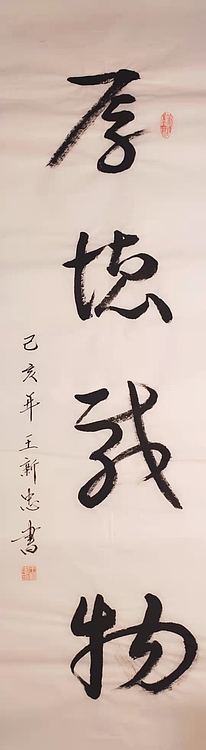 厚德载物
己亥年王新忠書